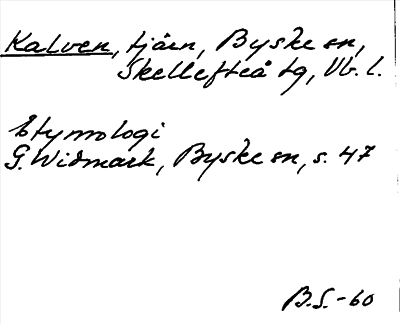 Kalven, tjärn, Byske sn,
Skellefteå tg, Vb. l.
Etymologi
G. Widmark, Byske sn, s. 47
B.S.-60